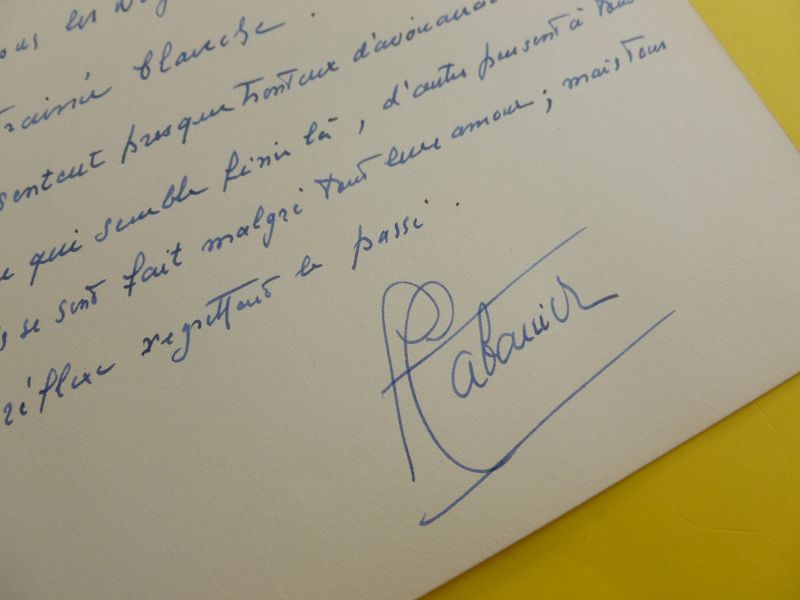 ous les
traînée blanche.
sentent presque honteux d'avouer
qui semble finir là, d'autres pensent à tous
se sont fait malgré tout leur amour ; mais tous
regrettent le passé.
Cabanier